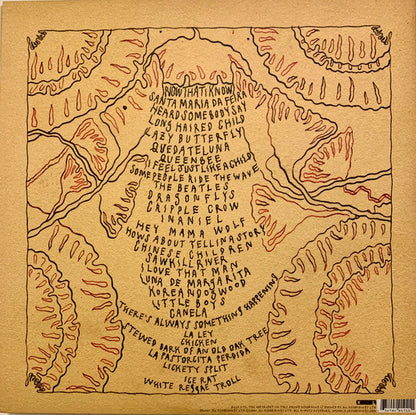 NOW THAT I KNOW
SANTA MARIA DA FEIRA
HEARD SOMEBODY SAY
LONG HAIRED CHILD
LAZY BUTTERFLY
QUEDATE LUNA
QUEEN BEE
I FEEL JUST LIKE A CHILD
SOME PEOPLE RIDE THE WAVE
THE BEATLES
DRAGONFLYS
CRIPPLE CROW
INANIEL
HEY MAMA WOLF
HOWS ABOUT TELLIN A STORY
CHINESE CHILDREN
SAWKILL RIVER
I LOVE THAT MAN
LUNA DE MARGARITA
KOREAN DOGWOOD
LITTLE BOYS
CANELA
THERE'S ALWAYS SOMETHING HAPPENING
LA LEY
CHICKEN
STEWED BARK OF AN OLD OAK TREE
LA PASTORCITA PERDIDA
LICKETY SPLIT
ICE RAT
WHITE REGGAE TROLL